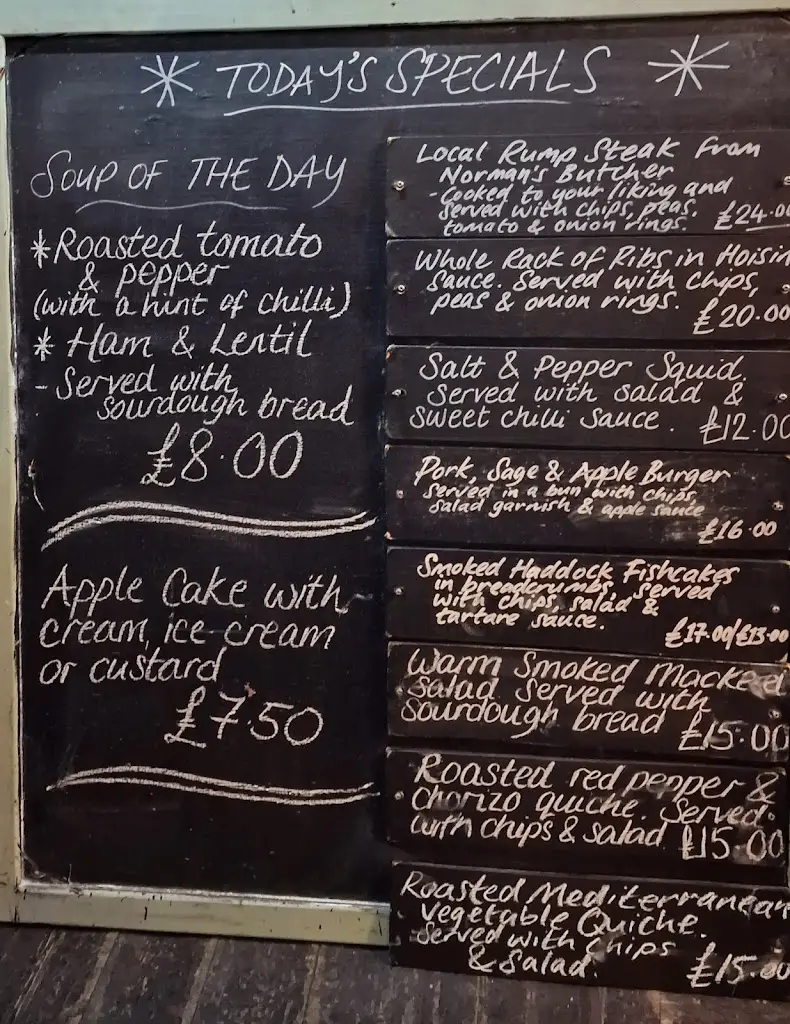 * TODAY'S SPECIALS *
SOUP OF THE DAY
* Roasted tomato
& pepper
(with a hint of chilli)
* Ham & Lentil
- Served with
sourdough bread
£8.00
Apple Cake with
cream, ice-cream
or custard
£7.50
Local Rump Steak from
Norman's Butcher
- Cooked to your liking and
served with chips, peas,
tomato & onion rings. £24.00
Whole Rack of Ribs in Hoisin
sauce. Served with chips,
peas & onion rings. £20.00
Salt & Pepper Squid.
Served with salad &
sweet chilli sauce. £12.00
Pork, Sage & Apple Burger
Served in a bun with chips
salad garnish & apple sauce
£16.00
Smoked Haddock Fishcakes
in breadcrumbs, served
with chips, salad &
tartare sauce.
£17.00/£13.00
Warm Smoked Mackerel
salad served with
sourdough bread £15.00
Roasted red pepper &
chorizo quiche. Served
with chips & salad £15.00
Roasted Mediterranean
vegetable Quiche.
Served with Chips
& Salad. £15.00